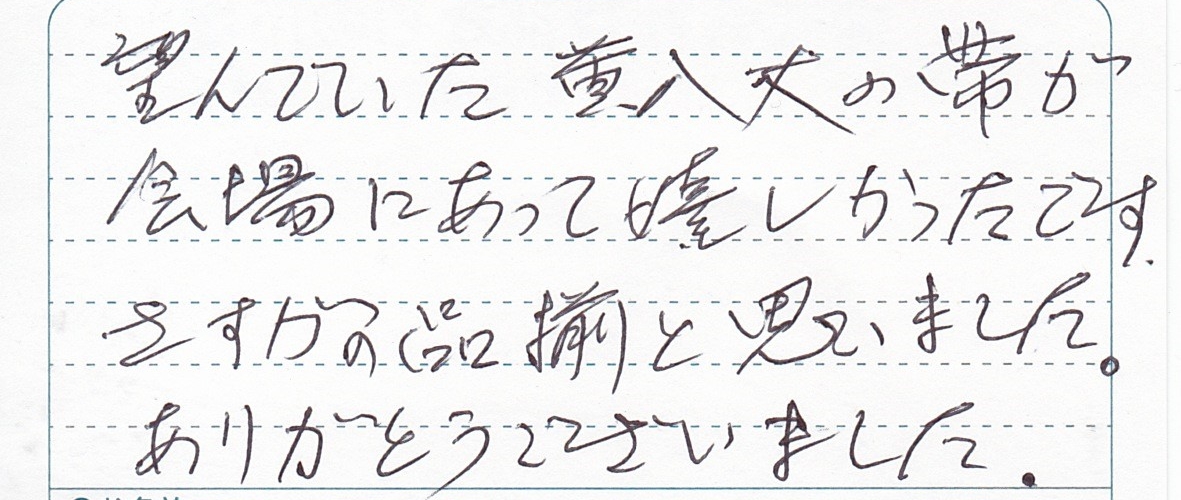 望んでいた黄八丈の帯が
会場にあって嬉しかったです.
さすがの品揃と思いました。
ありがとうございました.